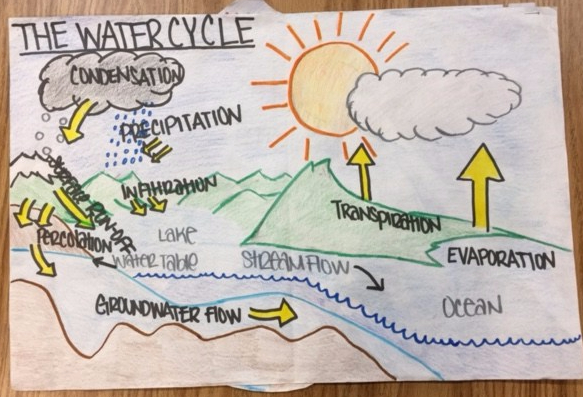 THE WATER CYCLE
CONDENSATION
PRECIPITATION
SURFACE RUN-OFF
INFILTRATION
TRANSPIRATION
PERCOLATION
LAKE
WATER TABLE
STREAM FLOW
EVAPORATION
GROUNDWATER FLOW
OCEAN